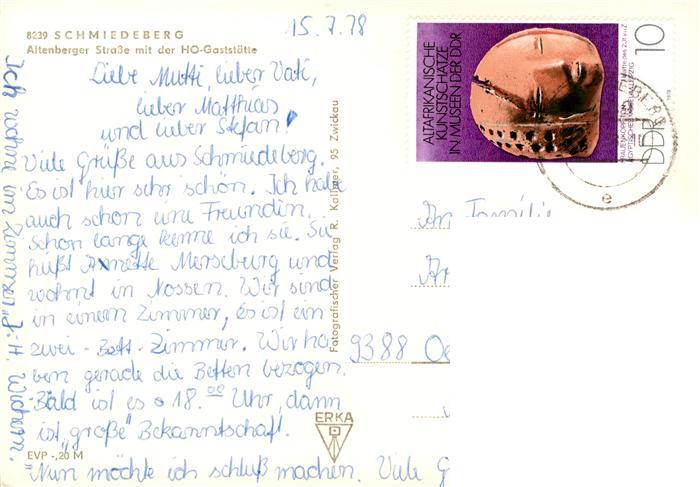 8239 SCHMIEDEBERG
Altenberger Straße mit der HO-Gaststätte
15.7.78
Liebe Mutti, lieber Vati,
lieber Matthias
und lieber Stefan!
Viele Grüße aus Schmiedeberg.
Es ist hier sehr schön. Ich habe
auch schon eine Freundin.
Schon lange kenne ich sie. Sie
heißt Annette Merseburg und
wohnt in Nossen. Wir sind
in einem Zimmer, Es ist ein
zwei-Bett-Zimmer. Wir ha
ben gerade die Betten bezogen.
Bald ist es 18.00 Uhr, dann
ist „große" Bekanntschaft.
Nun möchte ich schluß machen. Viele G
Ich wohne im Zimmer „J.-H. Wichern."
EVP -,20 M
ERKA
Fotografischer Verlag R. Kallmer, 95 Zwickau
ALTAFRIKANISCHE
KUNSTSCHÄTZE
IN MUSEEN DER DDR
10
DDR
1978
An Familie
9388 Oe